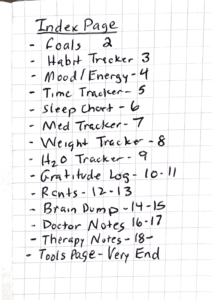 Index Page
- Goals 2
- Habit Tracker 3
- Mood/Energy - 4
- Time Tracker - 5
- Sleep Chart - 6
- Med Tracker - 7
- Weight Tracker - 8
- H2O Tracker - 9
- Gratitude Log - 10-11
- Rants - 12-13
- Brain Dump - 14-15
- Doctor Notes 16-17
- Therapy Notes - 18-
- Tools Page - Very End